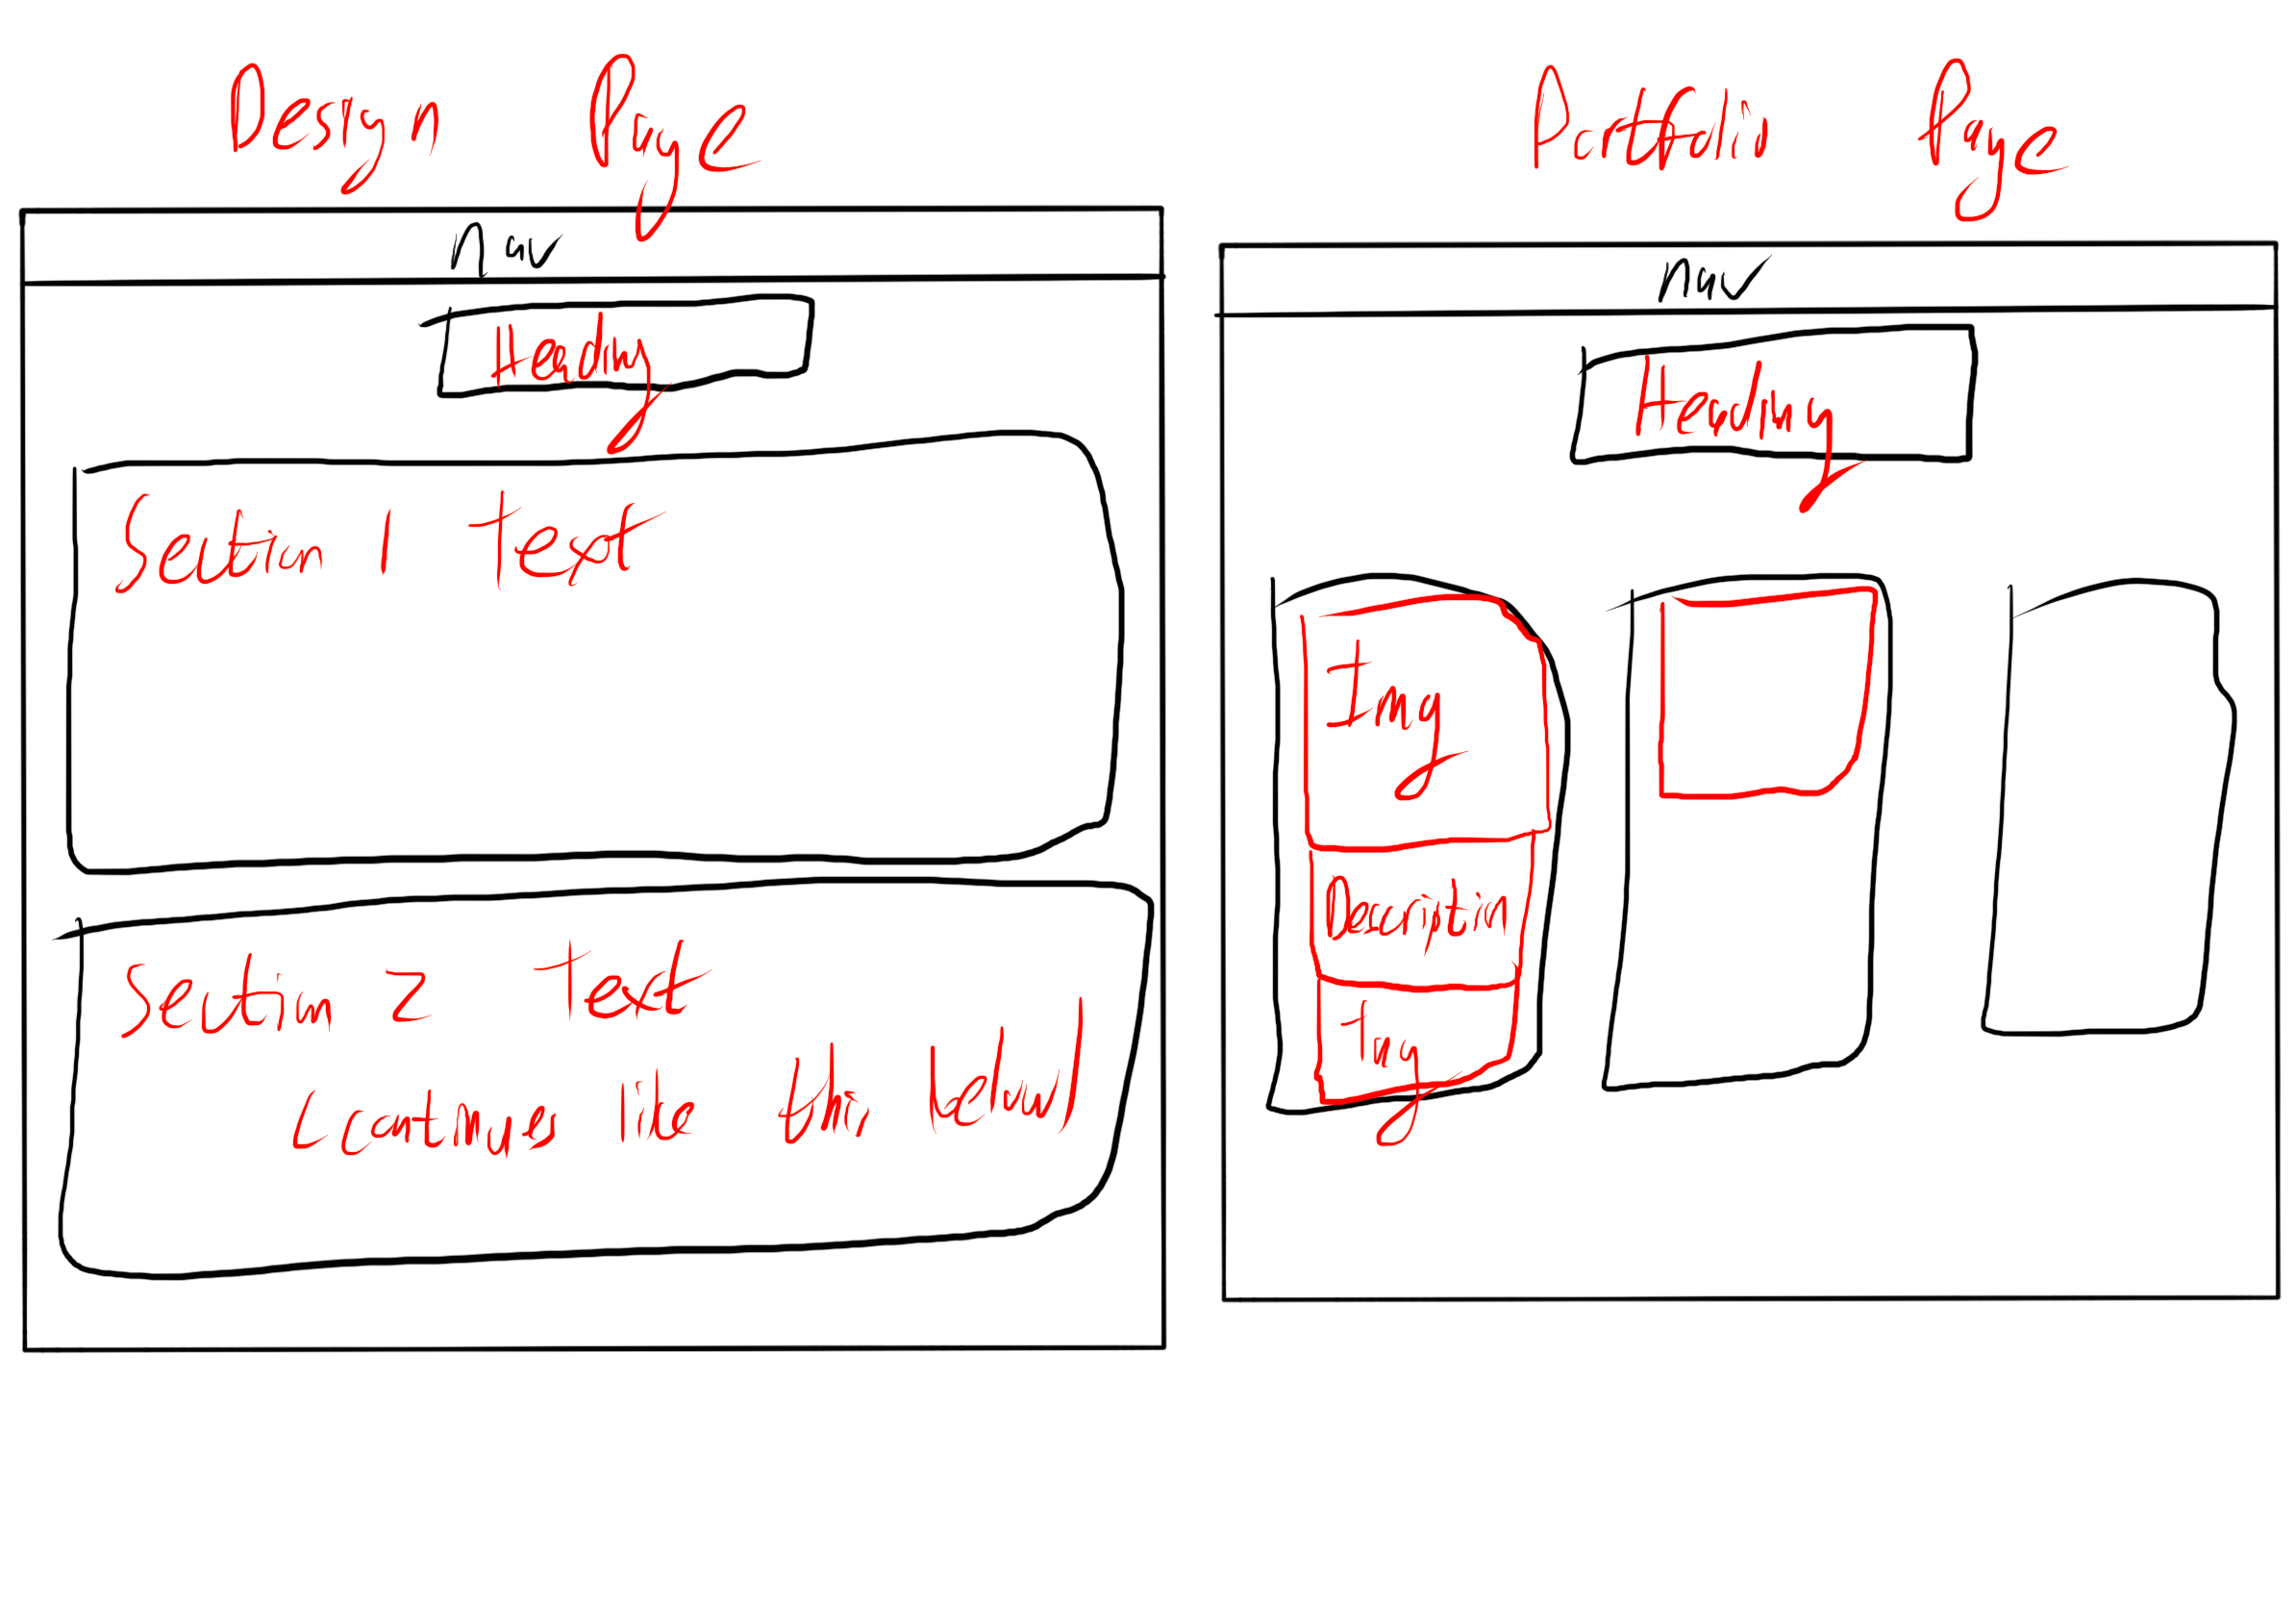 Design Page
nav
Heading
Section 1 text
Section 2 text
(continues like this below)
Portfolio Page
nav
Heading
Img
Description